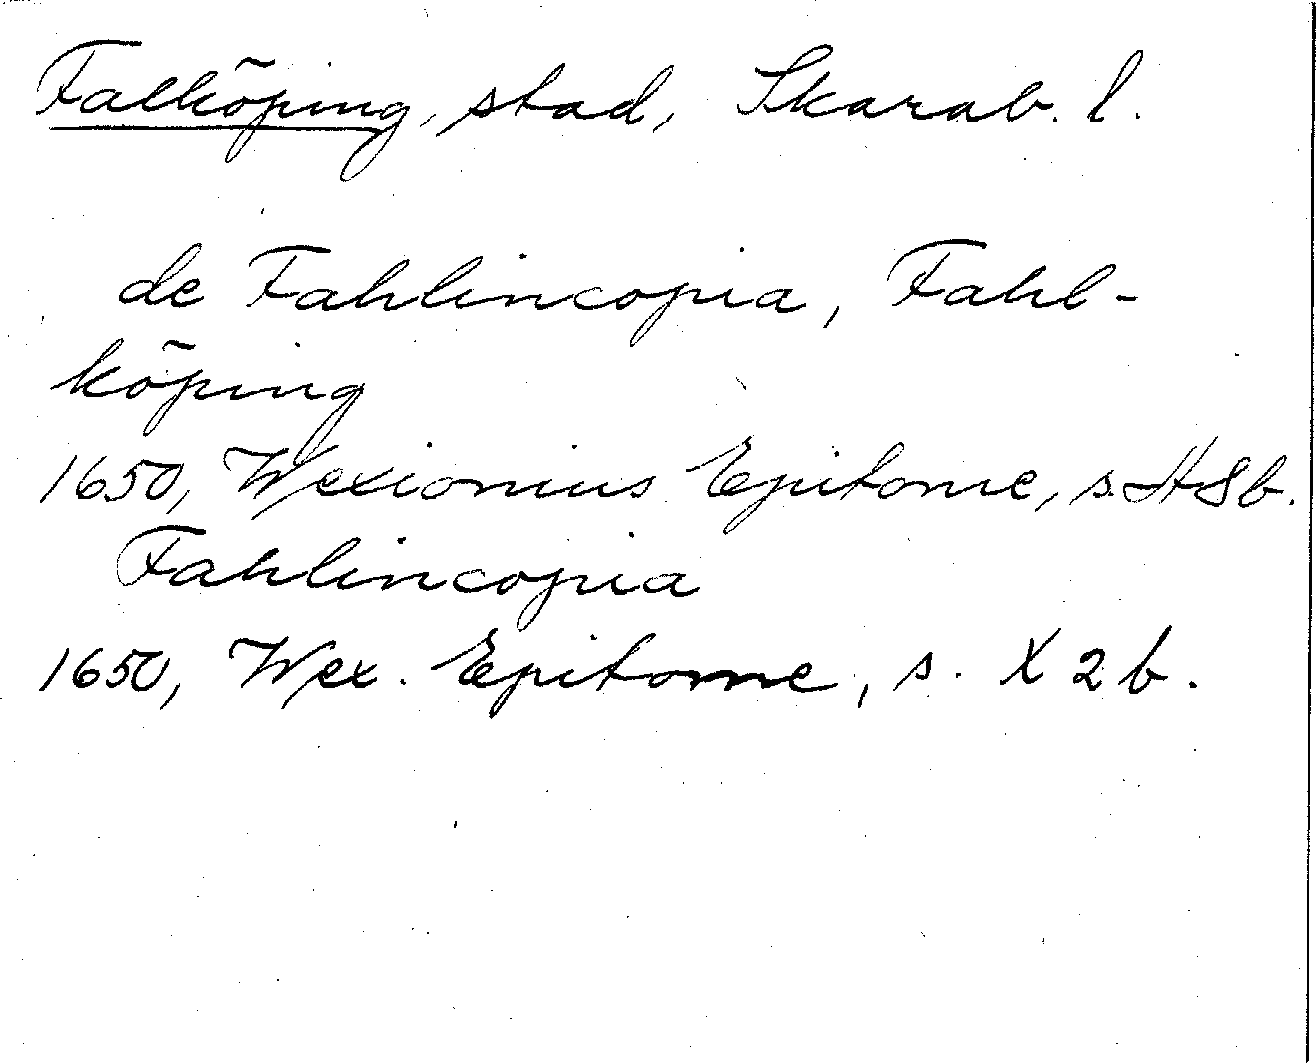 Falköping, stad, Skarab. l.
de Fahlincopia, Fahl-
köping
1650, Wexionius Epitome, s. H8b.
Fahlincopia
1650, Wex. Epitome, s. X2b.